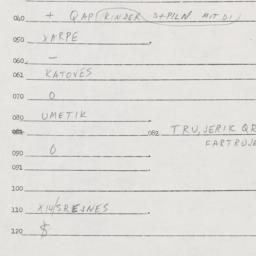 040 + QAP (RINDER S+PILN MIT DI)
050 XARPE
060 —
061 KATOVES
070 O
080 UMETIK
081 082 TRU, JERIK QR
FARTROJE
090 O
091
100
110 X14/SREJNES
120 $